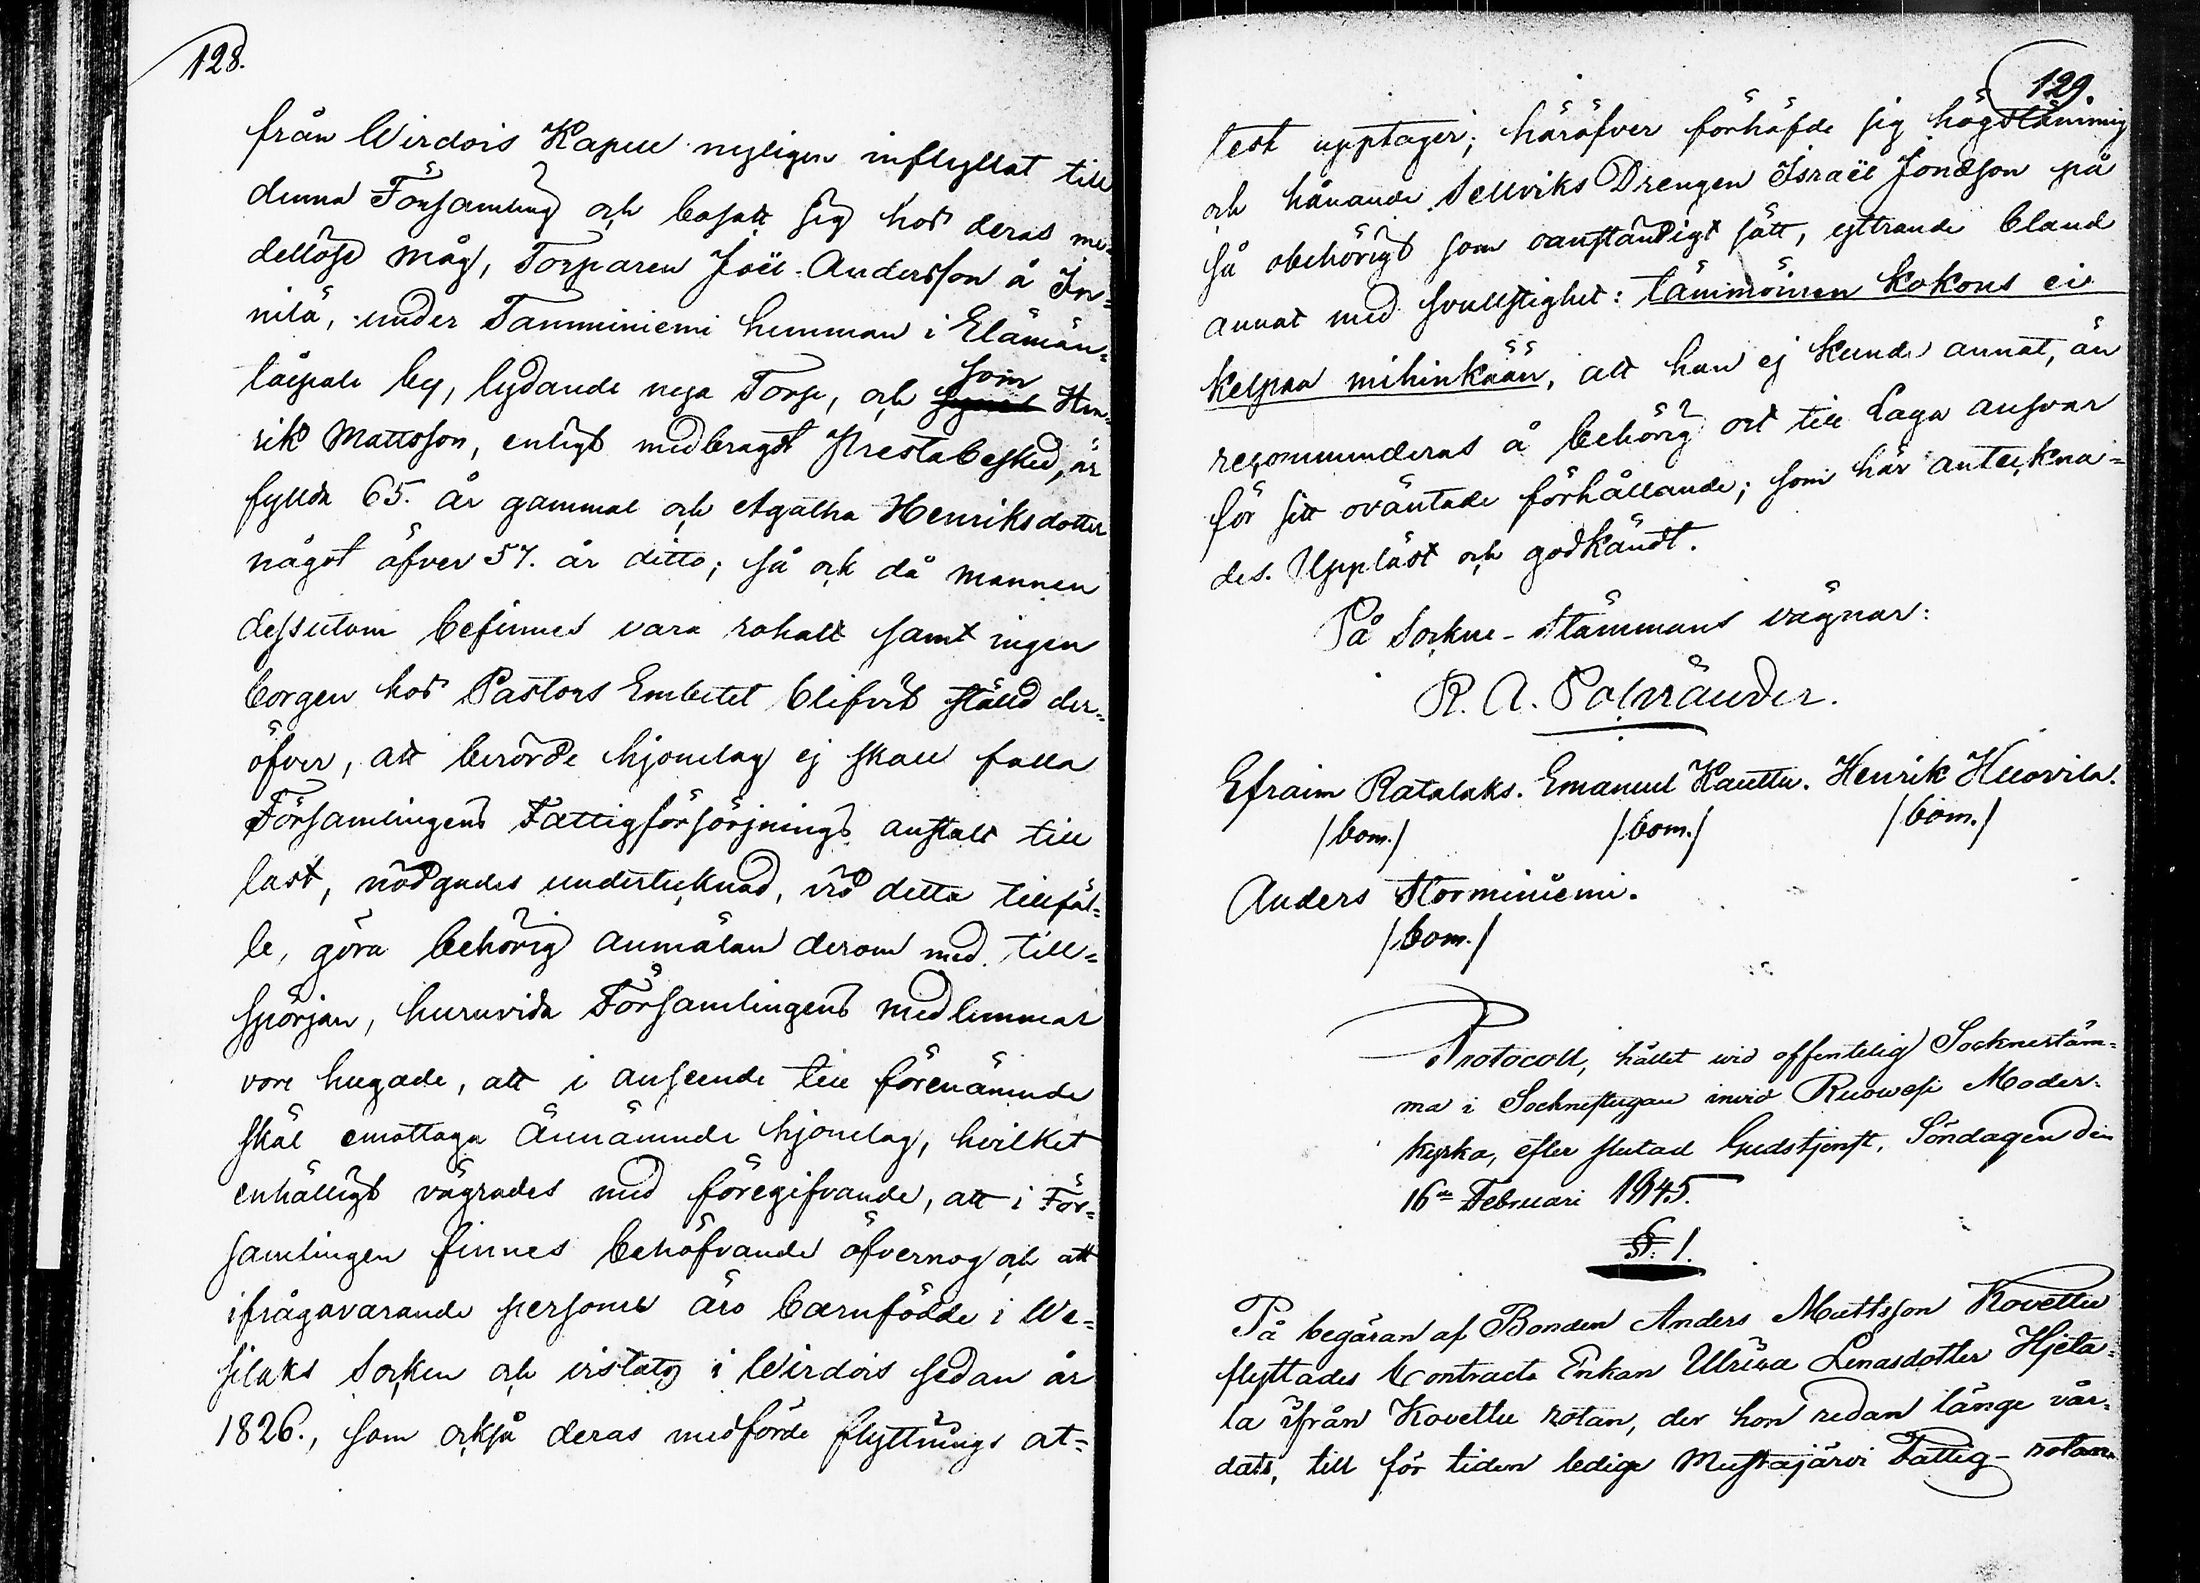 128.
från Wirdois Kapell nyligen inflyttat till
denna Församling och bosatt sig hos deras me-
dellöse måg, Torparen Joël Andersson å In=
nilä, under Tamminiemi hemman i Elämän=
läpale by, lydande nya Torp, och som Hen-
rik Mattsson, enligt medbragt Prestabesked, är
fyllda 65. år gammal och Agatha Henriksdotter
något öfver 57. år ditto; så och då mannen
dessutom befinnes vara rohalt samt ingen
borgen hos Pastors Embetet blifvit ställd der=
öfver, att berörde hjonelag ej skall falla
Församlingens Fattigförsörjnings anstalt till
last, nödgades undertecknad, vid detta tillfäl=
le, göra behörig anmälan derom med till=
spörjan, huruvida Församlingens medlemmar
vore hugade, att i anseende till förenämnde
skäl emottaga Ännämnde hjonelag, hvilket
enhälligt vägrades med föregifvande, att i För=
samlingen finnes behöfvande öfvernog och att
ifrågavarande personer äro barnfödde i We=
silaks Socken och vistats i Wirdois sedan år
1826., som också deras medförde flyttnings at=
129.
test upptager; häröfver förhäfde sig högstämmig
och hånande Sellviks Drengen Israël Jonæson på
så obehörigt som oanständigt sätt, yttrande bland
annat med svullstighet: tämmöinen kokous ei
kelpaa mihinkään, att han ej kunde annat, än
recommenderas å behörig ort till Laga ansvar
för sitt oväntade förhållande; som här anteckna=
des. Uppläst och godkändt.
På Sockne-Stämmans vägnar:
R. A. Polviander.
Efraim Ratalaks. Emanuel Kauttu. Henrik Huovila.
/bom./ /bom./ /bom./
Anders Storminiemi.
/bom./
Protocoll, hållet wid offentelig Socknestäm=
ma i Socknestugan invid Ruowesi Moder-
kyrka, efter slutad Gudstjenst, Söndagen den
16de Februari 1845.
§. 1.
På begäran af Bonden Anders Mattsson Kovettu
flyttades Contracts Enkan Ulrica Lenasdotter Hjeta=
la ifrån Kovettu rotan, der hon redan länge vår=
dats, till för tiden ledige Mustajärvi Fattig-rotan